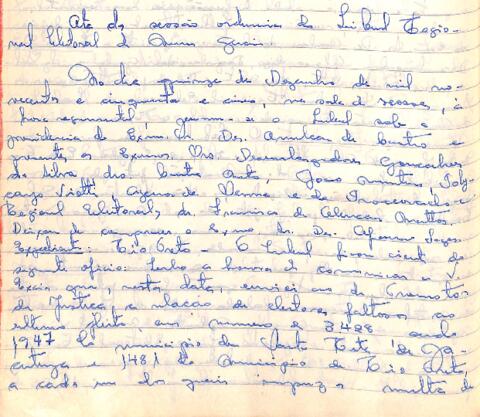 Ata da sessão ordinária do Tribunal Regio-
nal Eleitoral de Minas Gerais.
No dia quinze de Dezembro de mil no-
vecentos e cinquenta e cinco, na sala de sessões, à
hora regimental, reuniu-se o Tribunal sob a
presidencia do Exmo. Sr. Des. Amilcar de Castro e
presentes os Exmos. Srs. Desembargadores Gonçalves
da Silva, drs. Santos, João Martins,
Viotti, e do Procurador
Regional Eleitoral, dr. Francisco de Alencar
Deixou de comparecer o Exmo. Sr. Dr. Afonso
Expediente: Rio Preto - O Tribunal ficou ciente do
seguinte oficio: tenho a honra de comunicar a V.
Excia que, nesta data, enviei ao dr. Promotor
de Justiça, a relação de eleitores faltosos ao
ultimo pleito, em numero de 3428, sendo
1947 do municipio de Santa Rita de Ja-
cutinga e 1481 do Municipio de Rio Preto,
a cada um dos quais impuz a multa de